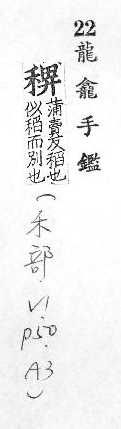 22龍龕手鑑
稗蒲賣反稻也
似稻而別也
(禾部.V1.P50.A3)